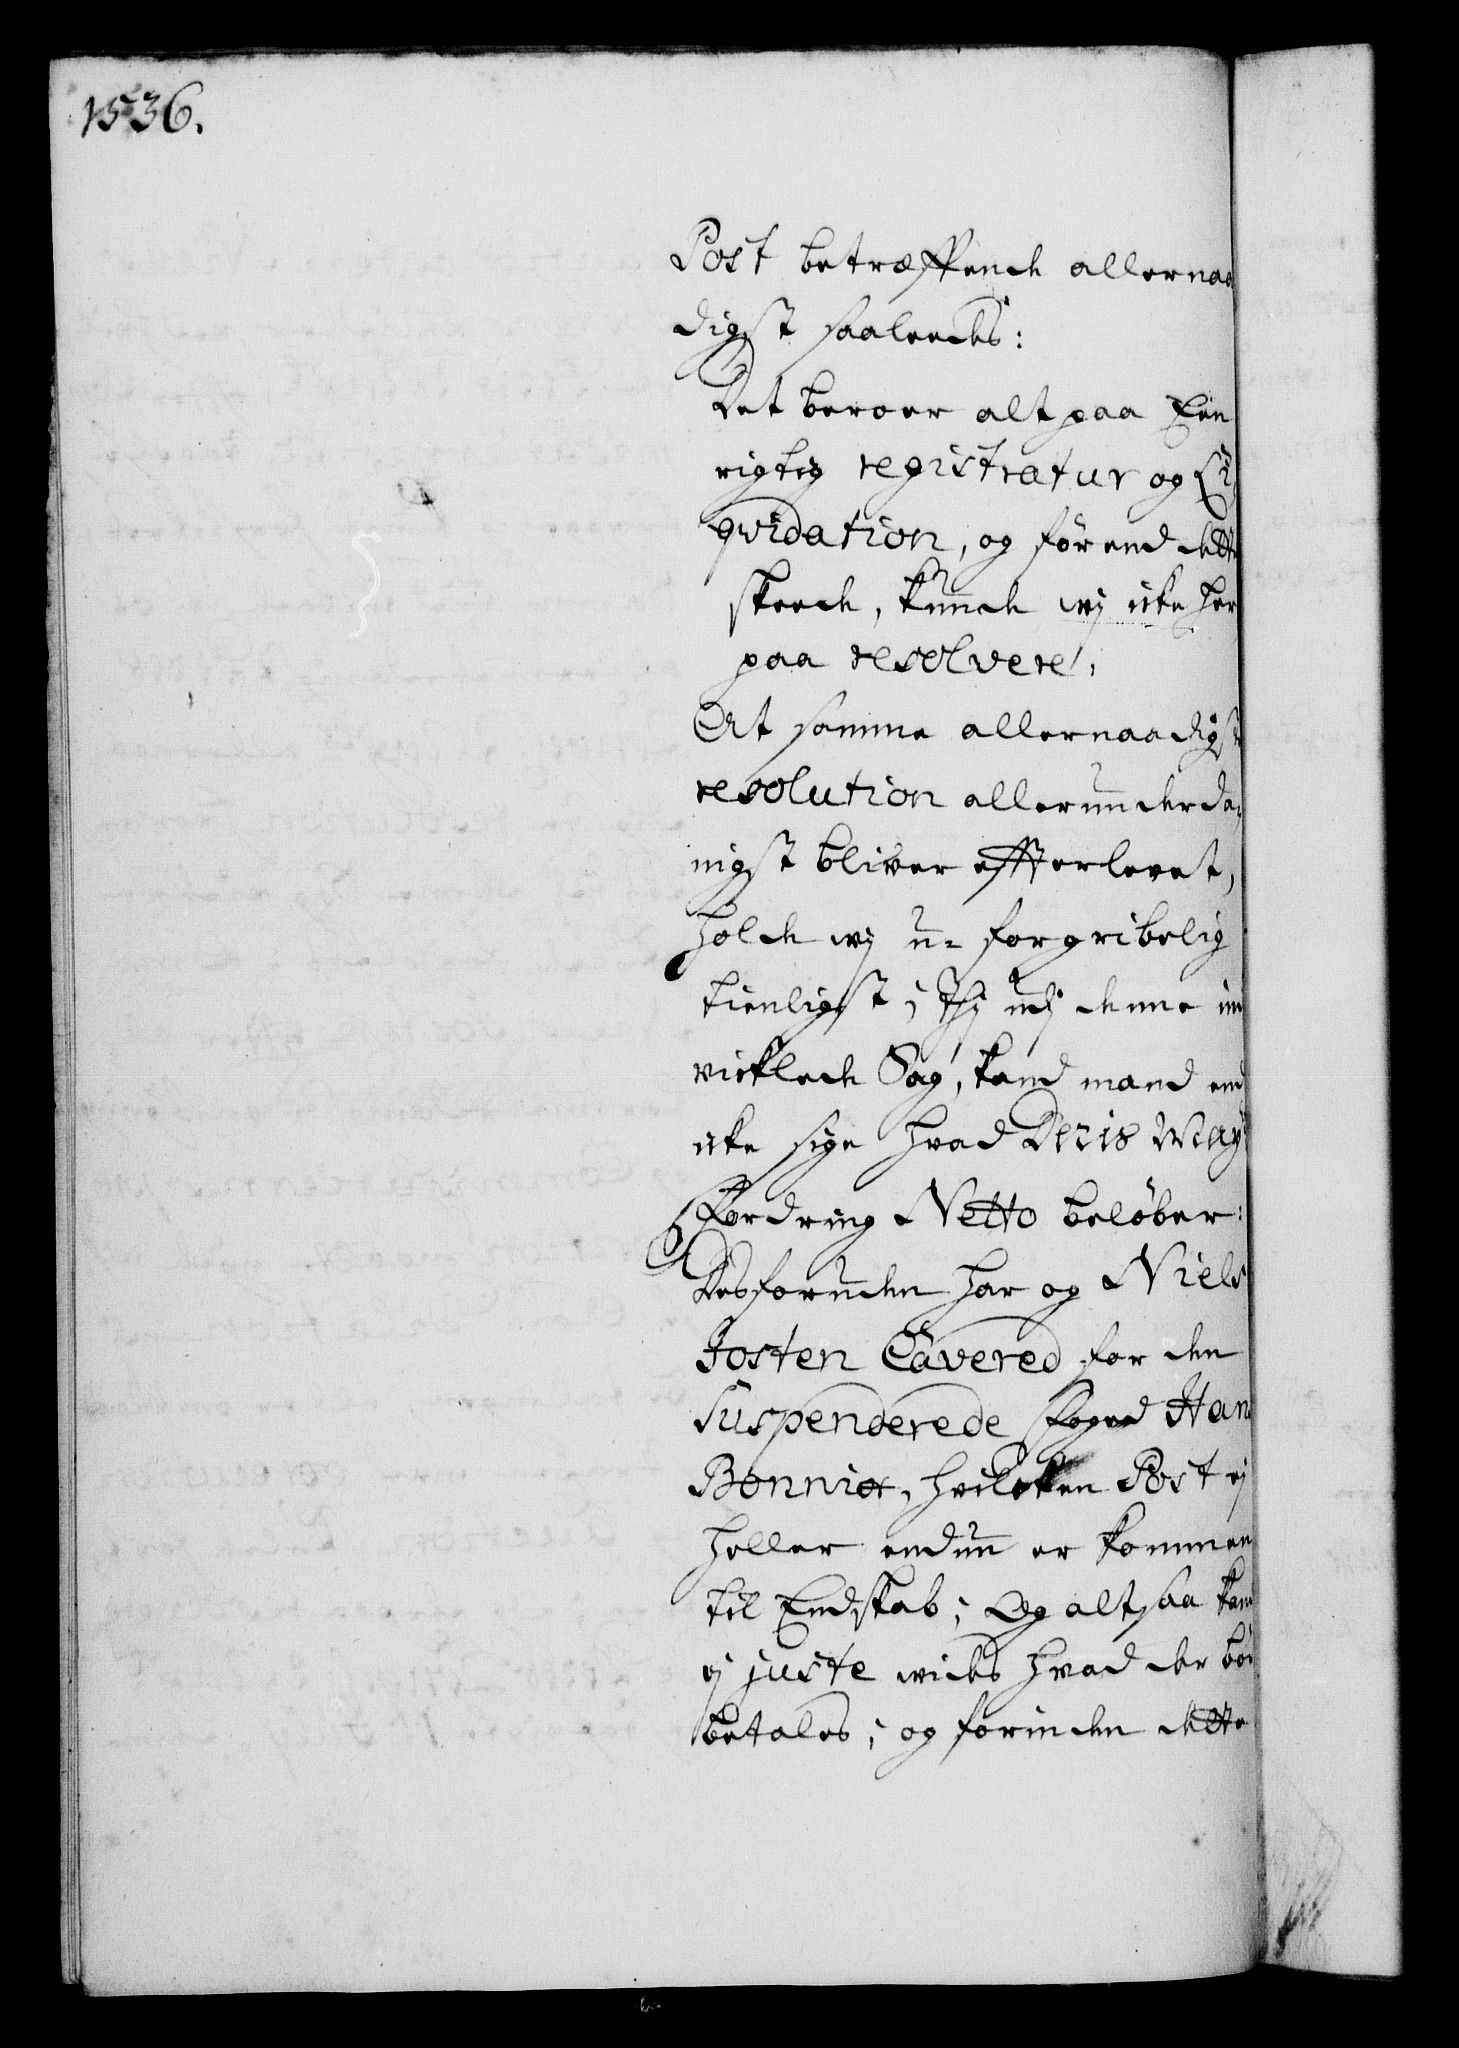 1536.
Post betræffende allernaa
digst saaledes:
Det beroer alt paa Een
rigtig registratur og Li
qvidation, og førend dette
skeede, kunde wj icke her
paa resolvere,
At samme allernaadigste
resolution allerunderda-
nigst bliver effterlevet,
holde wj u-forgribelig
tienligst; thj udj denne im
viklede Sag, kand mand end
icke sige hvad Deris May
Fordring Netto beløber:
Desforuden har og Niels
Josten Cavered for den
suspenderede foged Hans
Bonnix, hvilcken Post ej
heller endnu er kommen
til Endskab; Og altsaa kand
ej juste wides hvad der bør
betales; og forinden dette